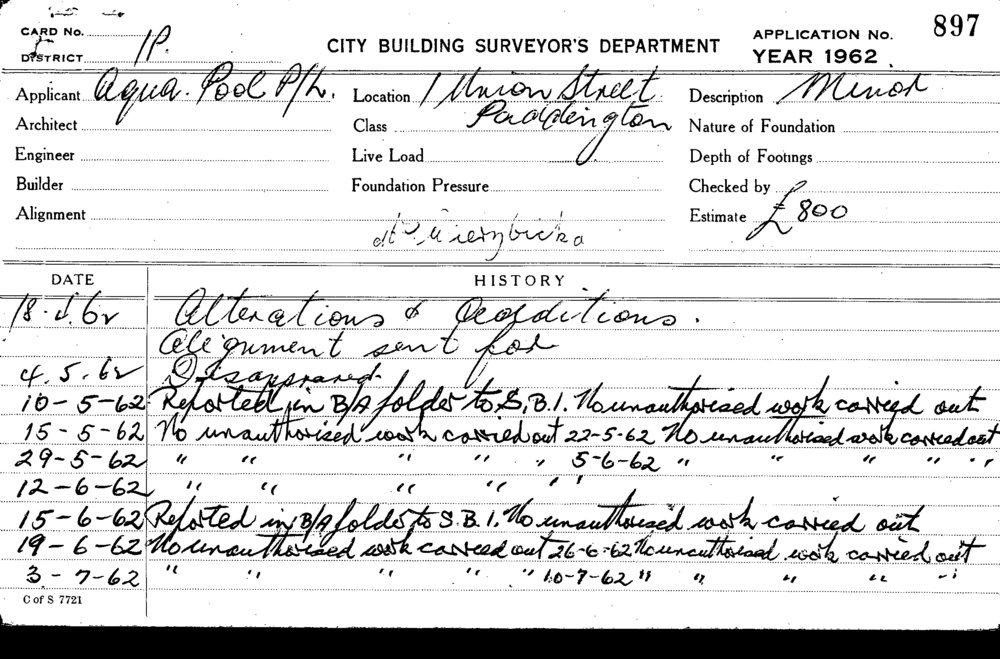 CARD No.
DISTRICT 1P.
CITY BUILDING SURVEYOR'S DEPARTMENT
APPLICATION No. 897
YEAR 1962
Applicant Aqua. Pool P/L.
Location 1 Union Street
Paddington
Description Minor
Architect
Class
Nature of Foundation
Engineer
Live Load
Depth of Footings
Builder
Foundation Pressure
Checked by
Alignment
Estimate £800
DATE
HISTORY
18.4.62 Alterations & Additions.
Alignment sent for
4.5.62 Disapproved.
10-5-62 Reported in B/A folder to S.B.I. No unauthorised work carried out
15-5-62 No unauthorised work carried out 22-5-62 No unauthorised work carried out
29-5-62 " " " " " 5-6-62 " " " " "
12-6-62 " " " " " "
15-6-62 Reported in B/A folder to S.B.I. No unauthorised work carried out
19-6-62 No unauthorised work carried out 26-6-62 No unauthorised work carried out
3-7-62 " " " " " 10-7-62 " " " " "
C of S 7721